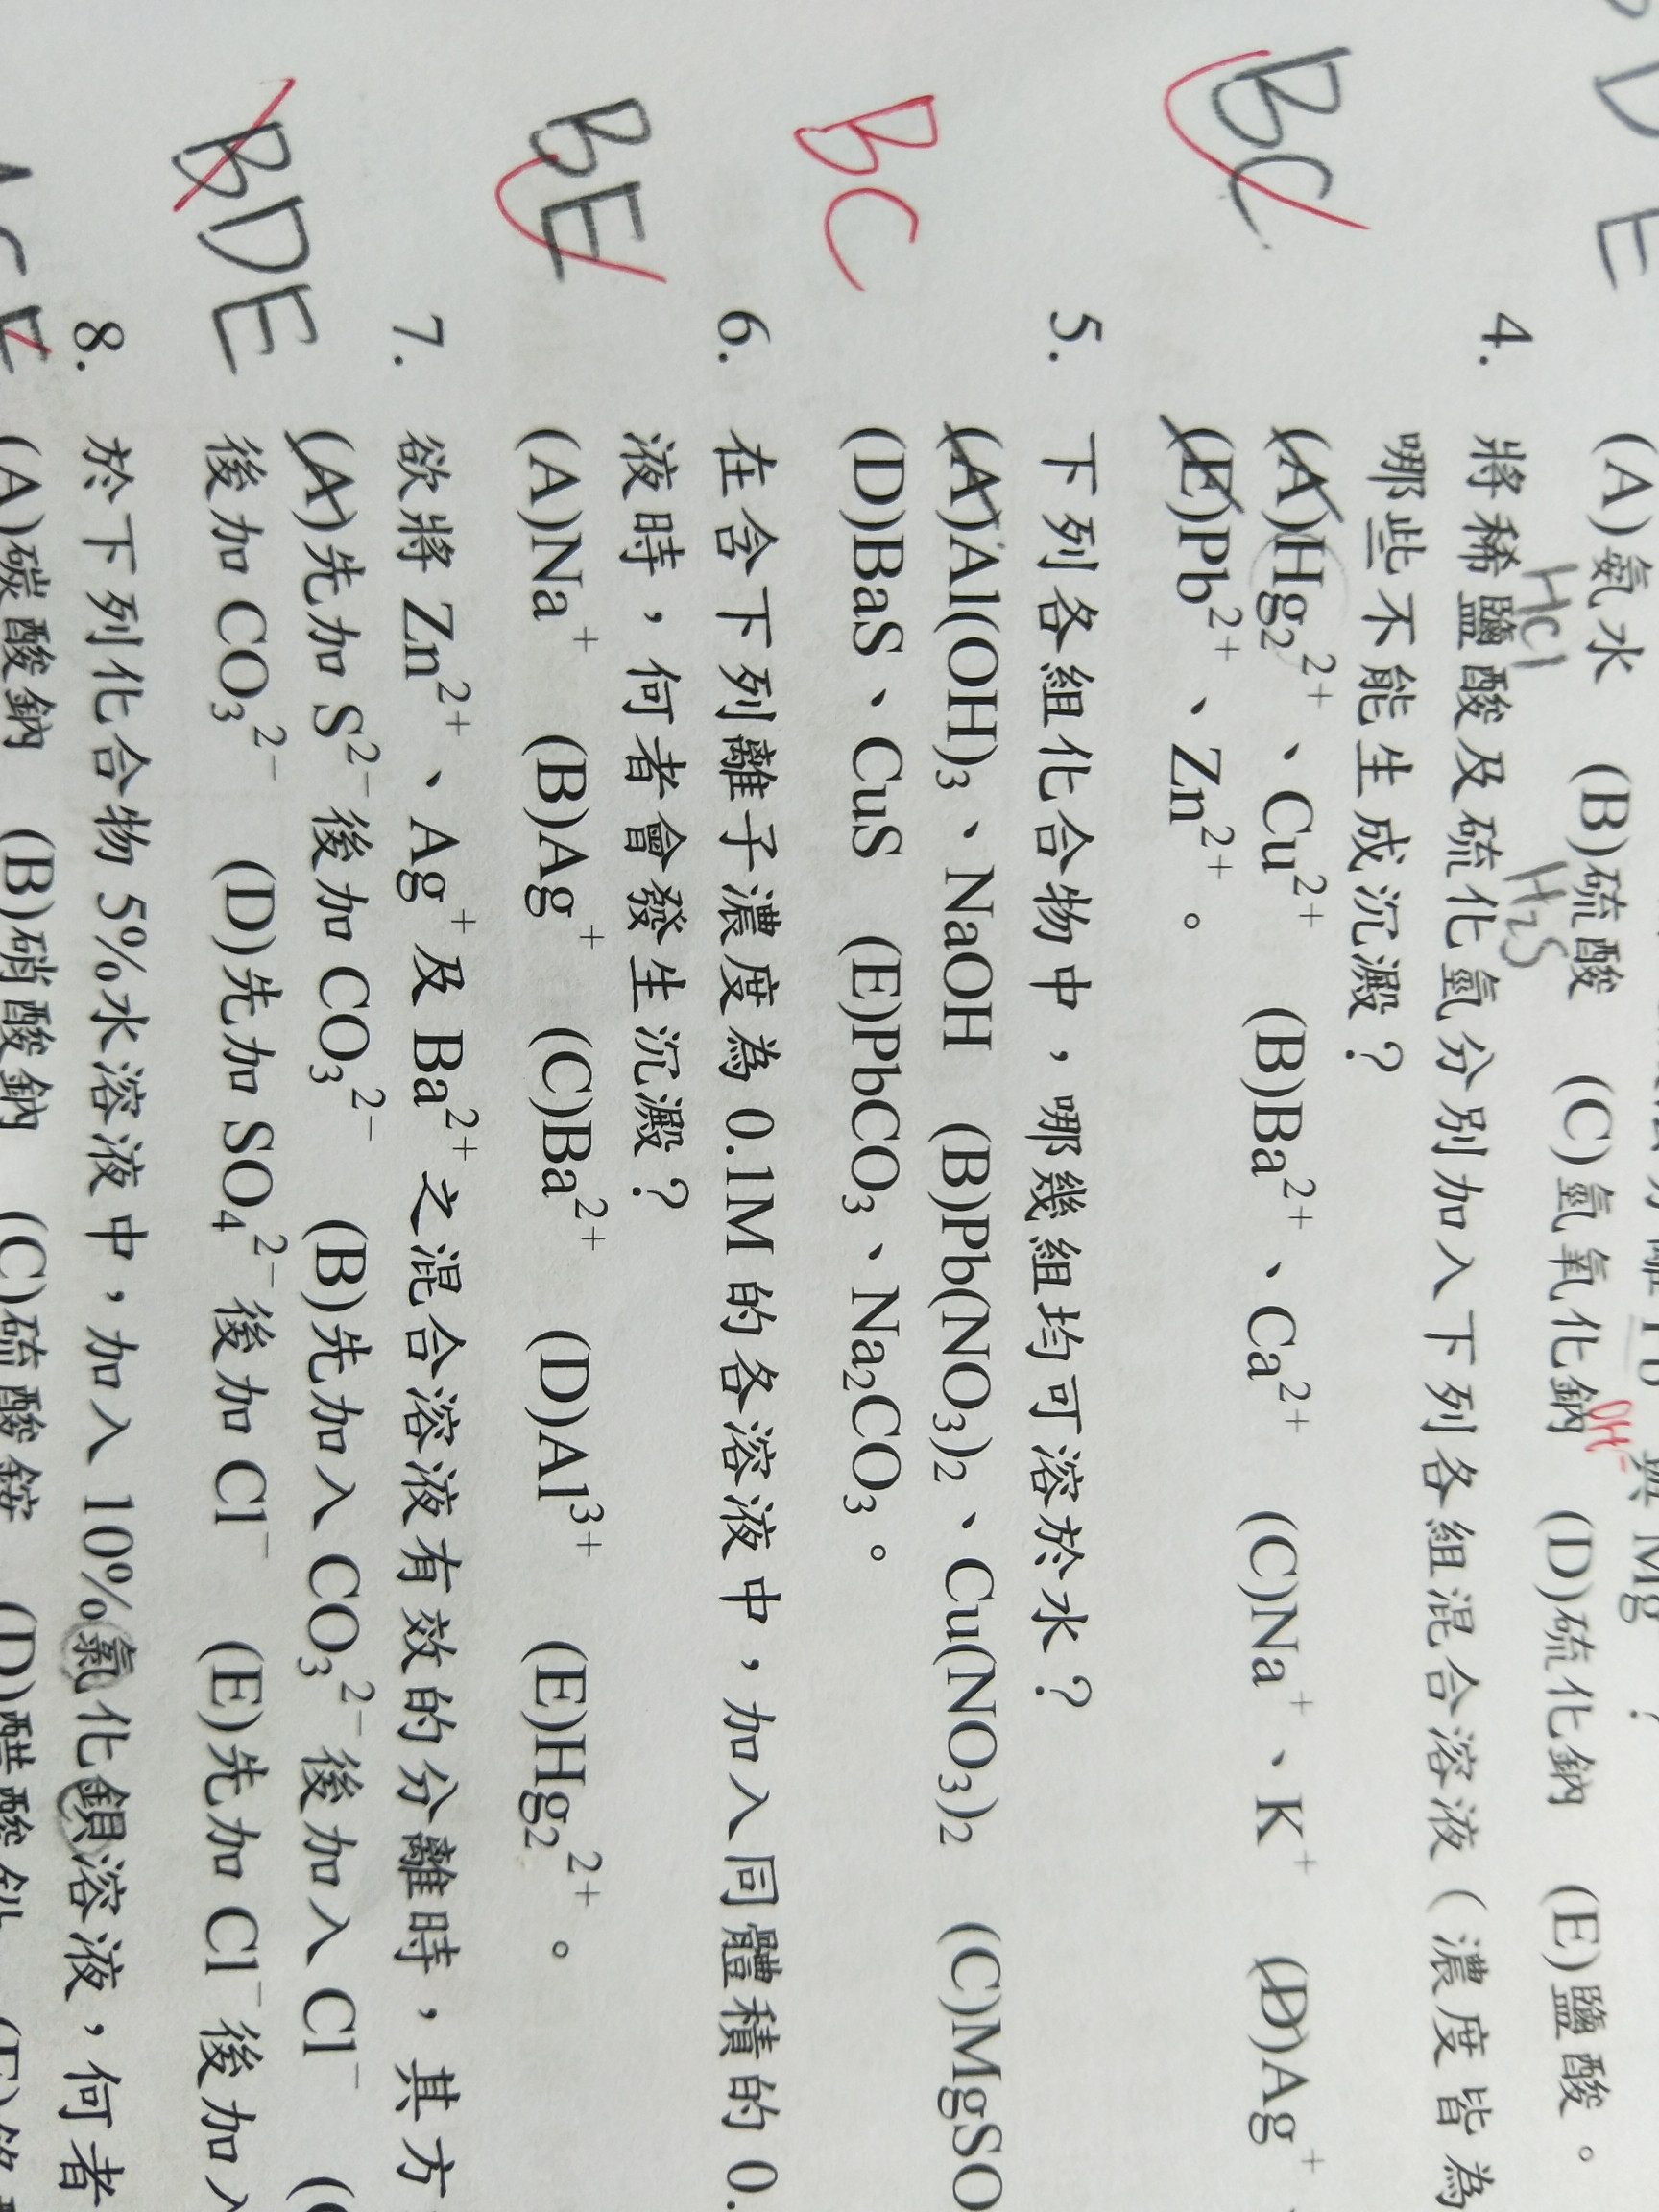 DE
(A)氨水 (B)硫酸 (C)氫氧化鈉 (D)硫化鈉 (E)鹽酸。
OH⁻
HCl H₂S
BC 4. 將稀鹽酸及硫化氫分別加入下列各組混合溶液(濃度皆為
哪些不能生成沉澱?
(A)Hg₂²⁺、Cu²⁺ (B)Ba²⁺、Ca²⁺ (C)Na⁺、K⁺ (D)Ag⁺、
(E)Pb²⁺、Zn²⁺。
BC 5. 下列各組化合物中,哪幾組均可溶於水?
(A)Al(OH)₃、NaOH (B)Pb(NO₃)₂、Cu(NO₃)₂ (C)MgSO
(D)BaS、CuS (E)PbCO₃、Na₂CO₃。
BE 6. 在含下列離子濃度為 0.1M 的各溶液中,加入同體積的 0.
液時,何者會發生沉澱?
(A)Na⁺ (B)Ag⁺ (C)Ba²⁺ (D)Al³⁺ (E)Hg₂²⁺。
BDE 7. 欲將 Zn²⁺、Ag⁺及 Ba²⁺之混合溶液有效的分離時,其方
(A)先加 S²⁻後加 CO₃²⁻ (B)先加入 CO₃²⁻後加入 Cl⁻ (
後加 CO₃²⁻ (D)先加 SO₄²⁻後加 Cl⁻ (E)先加 Cl⁻後加入
8. 於下列化合物 5%水溶液中,加入 10%氯化鋇溶液,何者
(A)碳酸鈉 (B)硝酸鈉 (C)硫酸銨